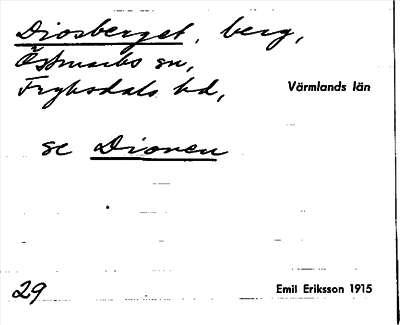 Diosberget, berg,
Östmarks sn,
Fryksdals hd, Värmlands län
se Dionen
29 Emil Eriksson 1915